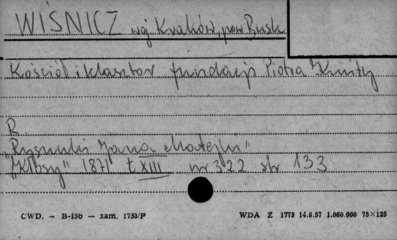 WIŚNICZ wj Kraków, pow Bush
Kościół i klasztor fundacji Piotra Kmity
R.
Rysunki Jana Matejki"
"Kłosy" 1871 t. XIII nr 322 str 133
CWD. - B-15b - zam. 1753/P WDA Z 1773 14.6.57 1.060.000 75×125